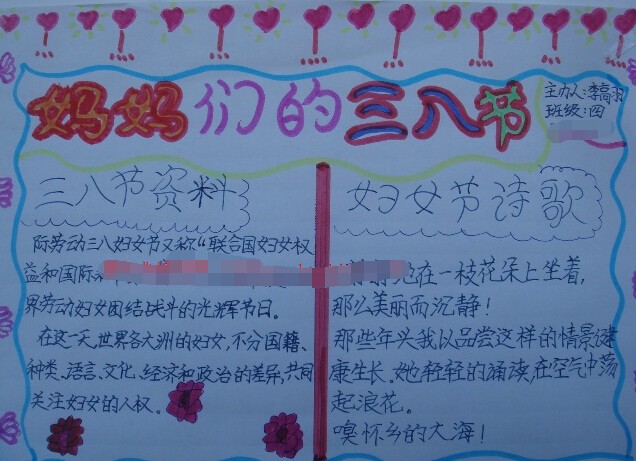 妈妈们的三八节
主办人:李高羽
班级:四
三八节资料
际劳动三八妇女节又称“联合国妇女权
益和国际
界劳动妇女团结战斗的光辉节日。
在这一天,世界各大洲的妇女,不分国籍、
种类、语言、文化、经济和政治的差异,共同
关注妇女的人权。
妇女节诗歌
她在一枝花朵上坐着,
那么美丽而沉静!
那些年头我以品尝这样的情景健
康生长。她轻轻的诵读,在空气中荡
起浪花。
嗅怀乡的大海!